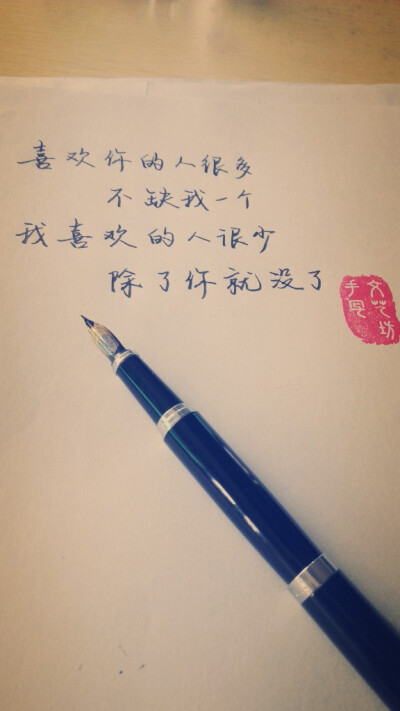 喜欢你的人很多
不缺我一个
我喜欢的人很少
除了你就没了
手写
文艺坊